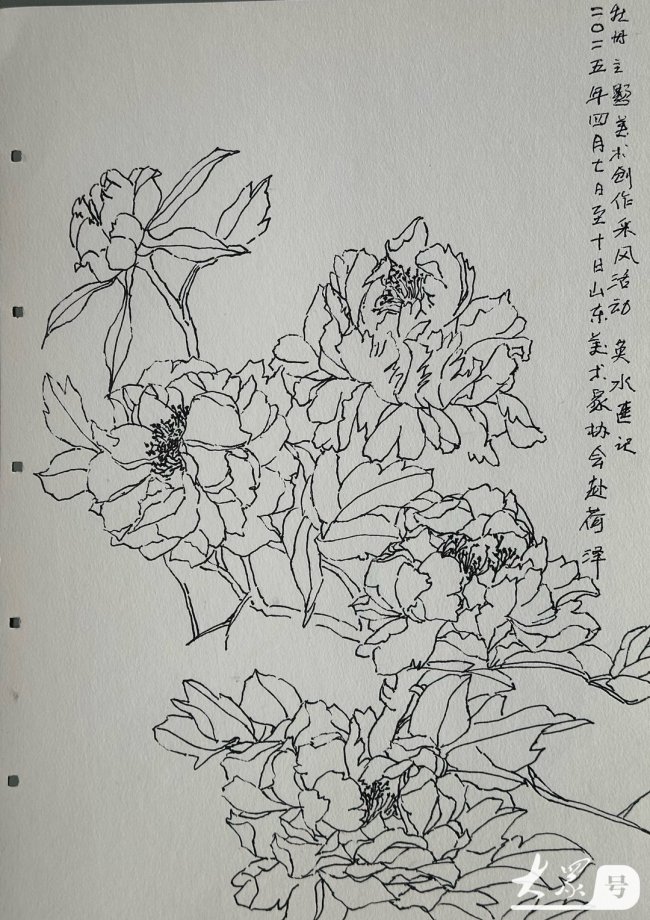 二〇二五年四月七日至十日山东美术家协会赴荷泽
牡丹主题美术创作采风活动 水 记
大眾号